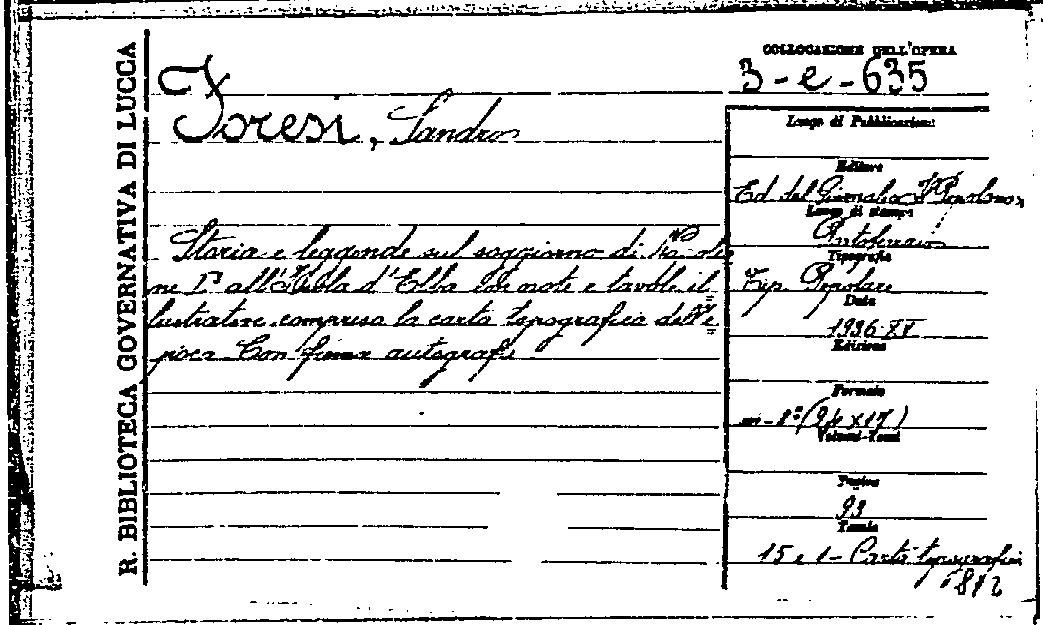 R. BIBLIOTECA GOVERNATIVA DI LUCCA
COLLOCAZIONE DELL'OPERA
3-e-635
Foresi, Sandro
Luogo di Pubblicazione
Editore
Ed. del Giornale "Il Popolano",
Luogo di stampa
Portoferraio
Tipografia
Tip. Popolare
Data
1936-XV
Edizione
Formato
in-8º (24x17)
Volumi-Tomi
Pagine
93
Tavole
15 e 1 - Carta topografica
Storia e leggende sul soggiorno di Napoleo
ne Iº all'Isola d'Elba con note e tavole il
lustrate compresa la carta topografica dell'e
poca Con firma autografa